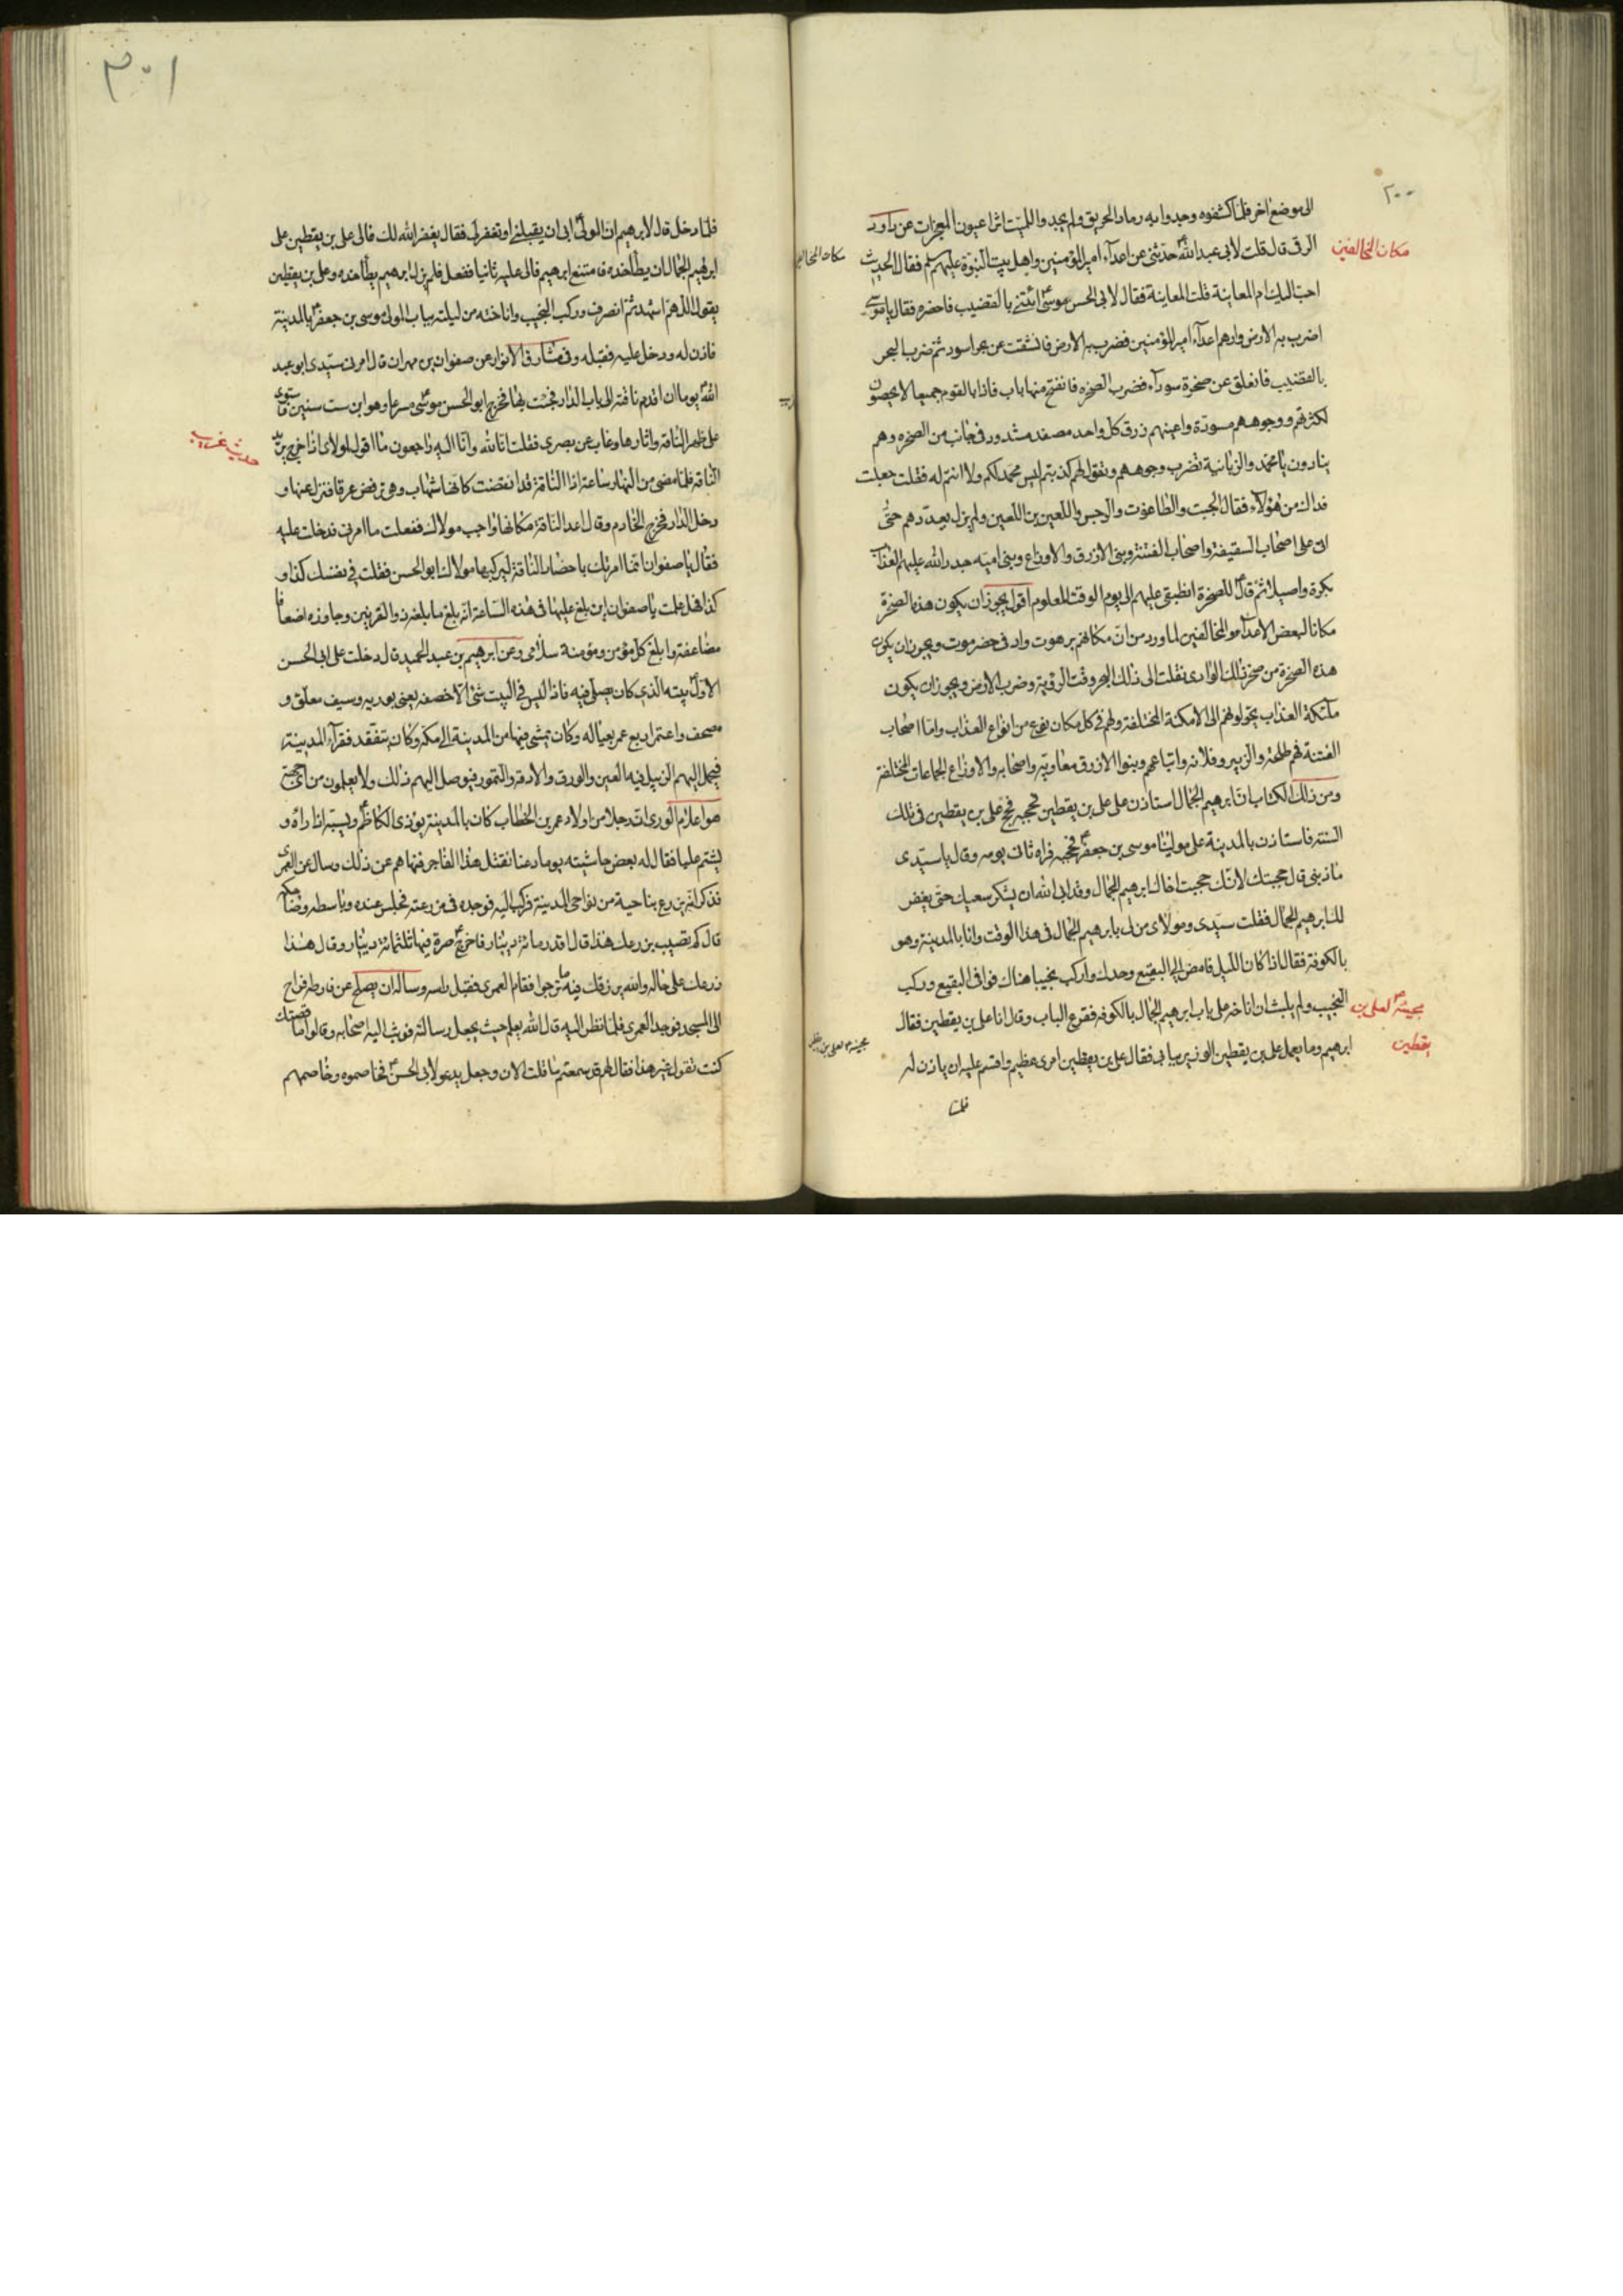 ٢٠٠
الى موضع اخر فلما كشفوه وجدوا به رماد الحريق ولم يجدوا للميت اثرا عيون المعجزات عن داود
الرقى قال قلت لابى عبد الله ع حدثنى عن اعداء امير المؤمنين واهل بيت النبوة عليهم سلم فقال الحديث
مكان المخالفين
احب اليك ام المعاينة قلت المعاينة فقال لابى الحسن موسى ع ائتنى بالقضيب فاحضره فقال يا موسى
اضرب به الارض وارهم اعداء امير المؤمنين فضرب به الارض فانشقت عن بحر اسود ثم ضرب البحر
بالقضيب فانفلق عن صخرة سوداء فضرب الصخره فانفتح منها باب فاذا بالقوم جميعا لا يحصون
لكثرتهم ووجوههم مسودة واعينهم زرق كل واحد مصفد مشدود فى جانب من الصخره وهم
ينادون يا محمد والزبانية تضرب وجوههم وتقول لهم كذبتم ليس محمد لكم ولا انتم له فقلت جعلت
فداك من هؤلاء فقال الجبت والطاغوت والرجس واللعين بن اللعين ولم يزل يعددهم حتى
اتى على اصحاب السقيفة واصحاب الفتنة وبنى الازرق والاوزاع وبنى اميه جدد الله عليهم العذاب
بكرة واصيلا ثم قال ع للصخرة انطبقى عليهم الى يوم الوقت المعلوم اقول يجوز ان يكون هذه الصخرة
مكانا لبعض الاعداء والمخالفين لما ورد من ان مكانهم برهوت واد فى حضرموت ويجوز ان يكون
هذه الصخرة من صخر ذلك الوادى نقلت الى ذلك البحر وقت الرؤية وضرب الارض ويجوز ان يكون
ملئكة العذاب يحولونهم الى الامكنة المختلفة ولهم فى كل مكان نوع من انواع العذاب واما اصحاب
الفتنة فهم طلحة والزبير وفلانه واتباعهم وبنوا الازرق معاوية واصحابه والاوزاع الجماعات المختلفة
ومن ذلك الكتاب ان ابرهيم الجمال استاذن على على بن يقطين فحجبه فحج على بن يقطين فى تلك
السنه فاستاذن بالمدينة على مولينا موسى بن جعفر ع فحجبه فراه ثانى يومه وقال يا سيدى
ما ذنبى قال حجبتك لانك حجبت اخاك ابرهيم الجمال وقد ابى الله ان يشكر سعيك حتى يغفر
لك ابرهيم الجمال فقلت سيدى ومولاى من لى بابرهيم الجمال فى هذا الوقت وانا بالمدينة وهو
بالكوفة فقال اذا كان الليل فامض الى البقيع وحدك واركب نجيبا هناك فوافى البقيع وركب
النجيب ولم يلبث ان اناخه على باب ابرهيم الجمال بالكوفه فقرع الباب وقال انا على بن يقطين فقال
لعلى بن
ابرهيم وما يعمل على بن يقطين الوزير ببابى فقال على بن يقطين امرى عظيم واقسم عليه ان ياذن له
يقطين
فلما
٣٠١
فلما دخل قال لابرهيم ان المولى ع ابى ان يقبلنى او تغفر لى فقال يغفر الله لك فالى على بن يقطين على
ابرهيم الجمال ان يطا خده فامتنع ابرهيم فالى عليه ثانيا ففعل فلم يزل ابرهيم يطا خده وعلى بن يقطين
يقول اللهم اشهد ثم انصرف وركب النجيب واناخه من ليلته بباب المولى موسى بن جعفر ع بالمدينة
فاذن له ودخل عليه فقبله وفى مشارق الانوار عن صفوان بن مهران قال امرنى سيدى ابو عبد
الله ع يوما ان اقدم ناقته الى باب الدار فجئت بها فخرج ابو الحسن موسى ع مسرعا وهو ابن ست سنين فاستوى
على ظهر الناقة واثارها وغاب عن بصرى فقلت انا لله وانا اليه راجعون ما اقول لمولاى اذا خرج يريد
حديث غريب
الناقه فلما مضى من النهار ساعة اذا الناقة قد انقضت كانها شهاب وهى ترفض عرقا فنزل عنها و
دخل الدار فخرج الخادم وقال اعد الناقة مكانها واجب مولاك ففعلت ما امرنى فدخلت عليه
فقال يا صفوان انما امرتك باحضار الناقة ليركبها مولاك ابو الحسن فقلت فى نفسك كذا و
كذا فهل علمت يا صفوان اين بلغ عليها فى هذه الساعة انه بلغ ما بلغه ذو القرنين وجاوزه اضعافا
مضاعفة وابلغ كل مؤمن ومؤمنة سلامى وعن ابرهيم بن عبد الحميد قال دخلت على ابى الحسن
الاول ع بيته الذى كان يصلى فيه فاذا ليس فى البيت شئ الا خصفه يعنى بوريه وسيف معلق و
مصحف واعتمر اربع عمر بعياله وكان يمشى فيها من المدينة الى مكه وكان يتفقد فقراء المدينة
فيحمل اليهم الزبيل فيه العين والورق والادقه والتمور فيوصل اليهم ذلك ولا يعلمون من اى جهة
هو اعلام الورى ان رجلا من اولاد عمر بن الخطاب كان بالمدينة يؤذى الكاظم ع ويسبه اذا راه و
يشتم عليا فقال له بعض حاشيته يوما دعنا نقتل هذا الفاجر فنهاهم عن ذلك وسال عن العمرى
فذكر انه يزرع بناحية من نواحى المدينة فركب اليه فوجده فى مزرعته فجلس عنده وباسطه وضاحكه
قال كم نصيب بزرعك هذا قال اقدر مائة دينار فاخرج ع صرة فيها ثلثمائة دينار وقال هذا
زرعك على حاله والله يرزقك فيه ما ترجوا فقام العمرى فقبل راسه وساله ان يصفح عن فارطه فراح
الى المسجد فوجد العمرى فلما نظر اليه قال الله يعلم حيث يجعل رسالته فوثب اليه اصحابه وقالوا ما قصتك
كنت تقول غير هذا فقال لهم قد سمعتم ما قلت الان وجعل يدعو لابى الحسن ع فخاصموه وخاصمهم